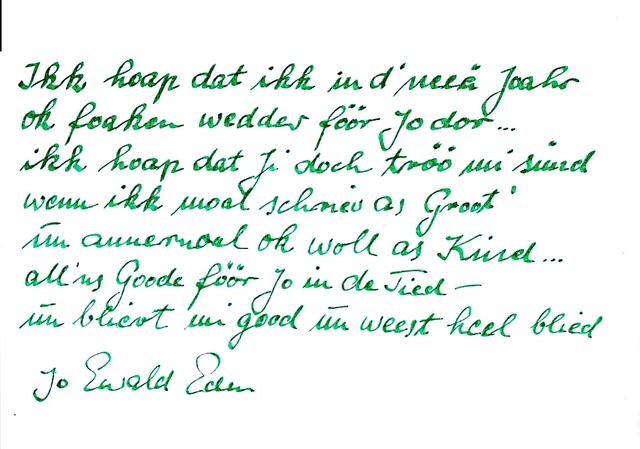 Ikk hoap dat ikk in d' neeä Joahr
ok foaken wedder föör Jo dor...
ikk hoap dat Ji doch tröö mi sünd
wenn ikk moal schriev as Groot'
ün annermoal ok woll as Kind...
all'ns Goode föör Jo in de Tied —
ün blievt mi good ün weest heel blied
Jo Ewald Eden